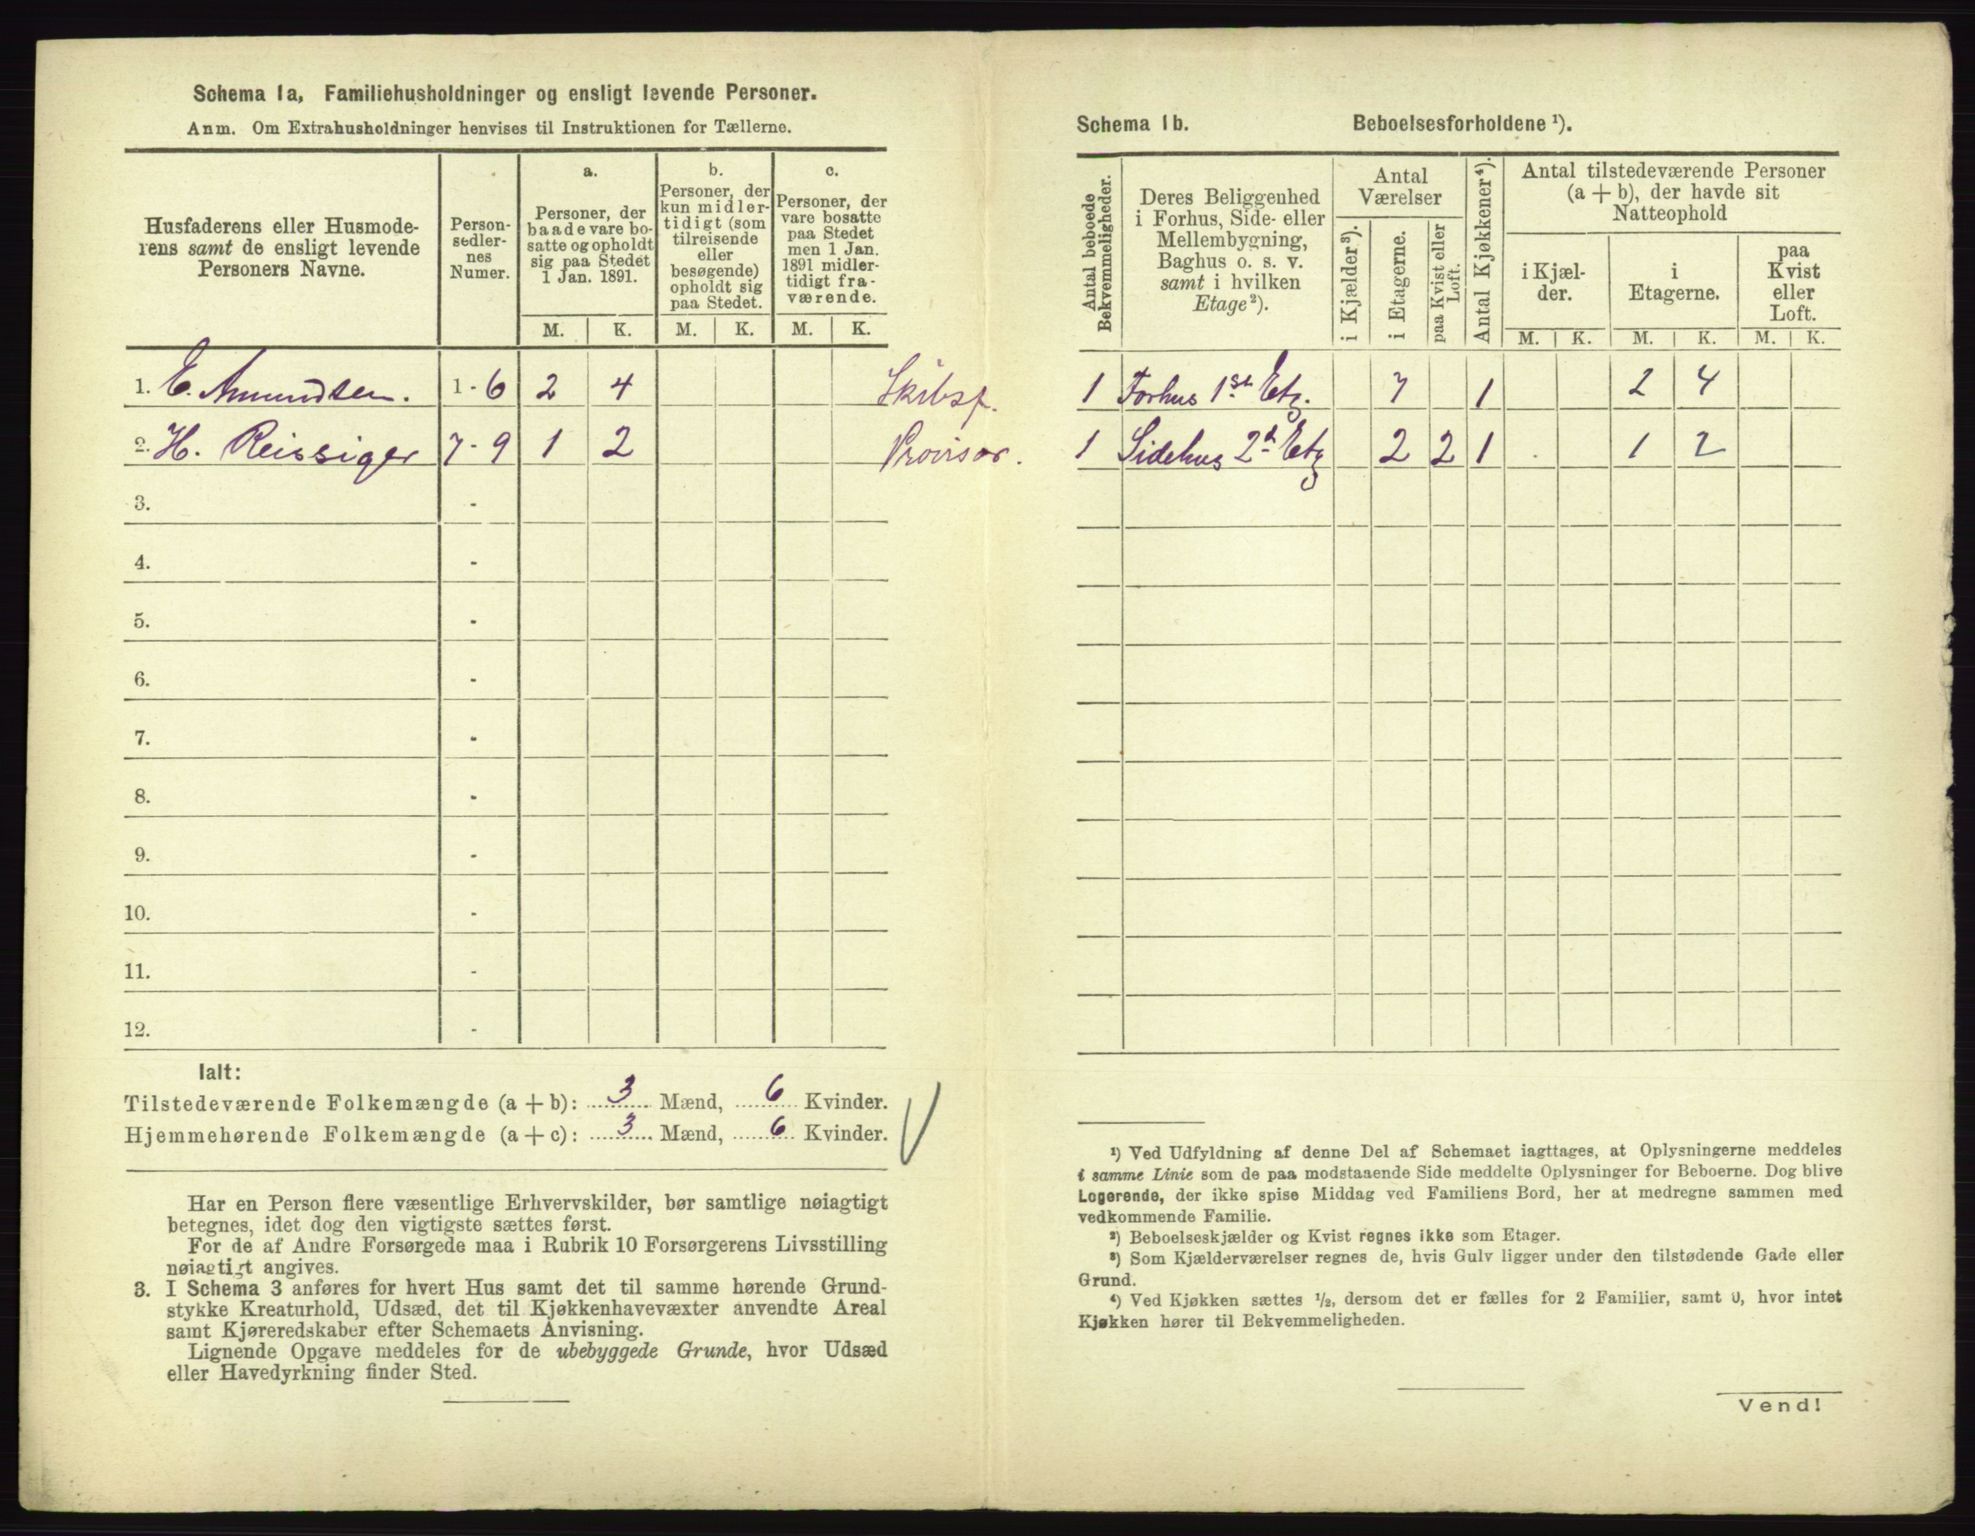 Schema 1a, Familiehusholdninger og ensligt levende Personer.
Anm. Om Extrahusholdninger henvises til Instruktionen for Tællerne.
Husfaderens eller Husmoderens samt de ensligt levende Personers Navne.
Personsedlernes Numer.
a.
Personer, der baade vare bosatte og opholdt sig paa Stedet 1 Jan. 1891.
b.
Personer, der kun midlertidigt (som tilreisende eller besøgende) opholdt sig paa Stedet.
c.
Personer, der vare bosatte paa Stedet men 1 Jan. 1891 midlertidigt fraværende.
M. K. M. K. M. K.
1. E. Amundsen. 1 - 6 2 4 Skibsf.
2. H. Reissiger 7 - 9 1 2 Provisor.
3. -
4. -
5. -
6. -
7. -
8. -
9. -
10. -
11. -
12. -
Ialt:
Tilstedeværende Folkemængde (a + b): 3 Mænd, 6 Kvinder.
Hjemmehørende Folkemængde (a + c): 3 Mænd, 6 Kvinder.
Har en Person flere væsentlige Erhvervskilder, bør samtlige nøiagtigt
betegnes, idet dog den vigtigste sættes først.
For de af Andre Forsørgede maa i Rubrik 10 Forsørgerens Livsstilling
nøiagtigt angives.
3. I Schema 3 anføres for hvert Hus samt det til samme hørende Grund-
stykke Kreaturhold, Udsæd, det til Kjøkkenhavevæxter anvendte Areal
samt Kjøreredskaber efter Schemaets Anvisning.
Lignende Opgave meddeles for de ubebyggede Grunde, hvor Udsæd
eller Havedyrkning finder Sted.
Schema 1b. Beboelsesforholdene ¹).
Antal beboede Bekvemmeligheder.
Deres Beliggenhed i Forhus, Side- eller Mellembygning, Baghus o. s. v. samt i hvilken Etage²).
Antal Værelser
i Kjælder³).
i Etagerne.
paa Kvist eller Loft.
Antal Kjøkkener⁴).
Antal tilstedeværende Personer (a + b), der havde sit Natteophold
i Kjælder.
i Etagerne.
paa Kvist eller Loft.
M. K. M. K. M. K.
1 Forhus 1st Etg. 7 1 2 4
1 Sidehus 2d Etg 2 2 1 1 2
¹) Ved Udfyldning af denne Del af Schemaet iagttages, at Oplysningerne meddeles
i samme Linie som de paa modstaaende Side meddelte Oplysninger for Beboerne. Dog blive
Logerende, der ikke spise Middag ved Familiens Bord, her at medregne sammen med
vedkommende Familie.
²) Beboelseskjælder og Kvist regnes ikke som Etager.
³) Som Kjælderværelser regnes de, hvis Gulv ligger under den tilstødende Gade eller
Grund.
⁴) Ved Kjøkken sættes ¹/₂, dersom det er fælles for 2 Familier, samt 0, hvor intet
Kjøkken hører til Bekvemmeligheden.
Vend!